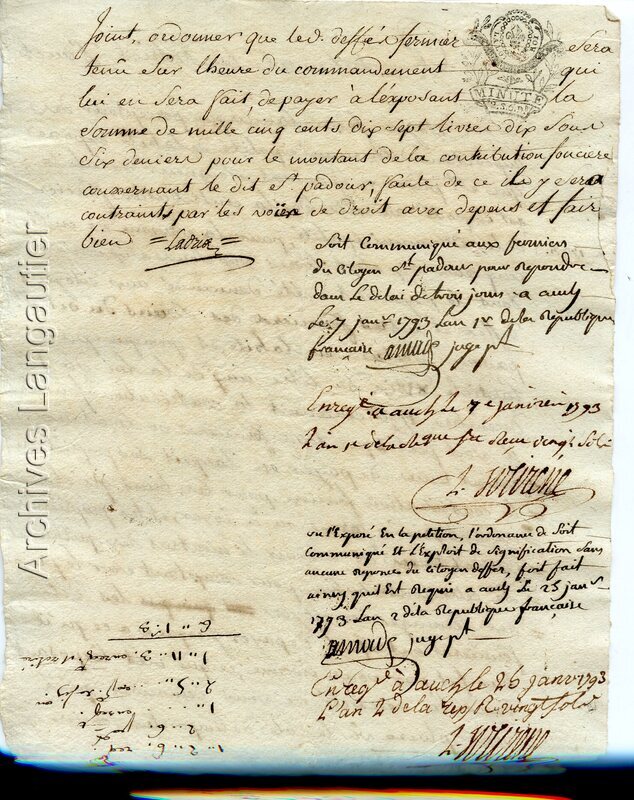 Joint, ordonner que led. deffés fermier sera
tenû sur l'heure du commandement qui
lui en sera fait, de payer à l'exposant la
somme de mille cinq cents dix sept livres dix sous
six deniers pour le montant de la contribution foncière
concernant le dit St. padour, faute de ce il y sera
contraints par les voies de droit avec depens et fair
bien =Latrix=
MINUTE
Soit Communiqué aux fermiers
du Citoyen St. padour pour repondre
dans le delai de trois jours a auch
Le 7 janr. 1793 Lan 1r de la Republique
française amade juge pt
Enregé. a auch le 7e janvier 1793
L an 1r de la que fse Reçu vingt sols
vu l'Exposé En la petition, l'ordonance de Soit
Communiqué Et L'Exploit de signification sans
aucune reponse du Citoyen deffes, soit fait
ainsy quil Est Requis a auch le 25 janr
1793 Lan 2 de la Republique française
amade juge pt
Enregé à auch le 26 janv 1793
L'an 2 de la rep R vingt sols
Archives Langautier